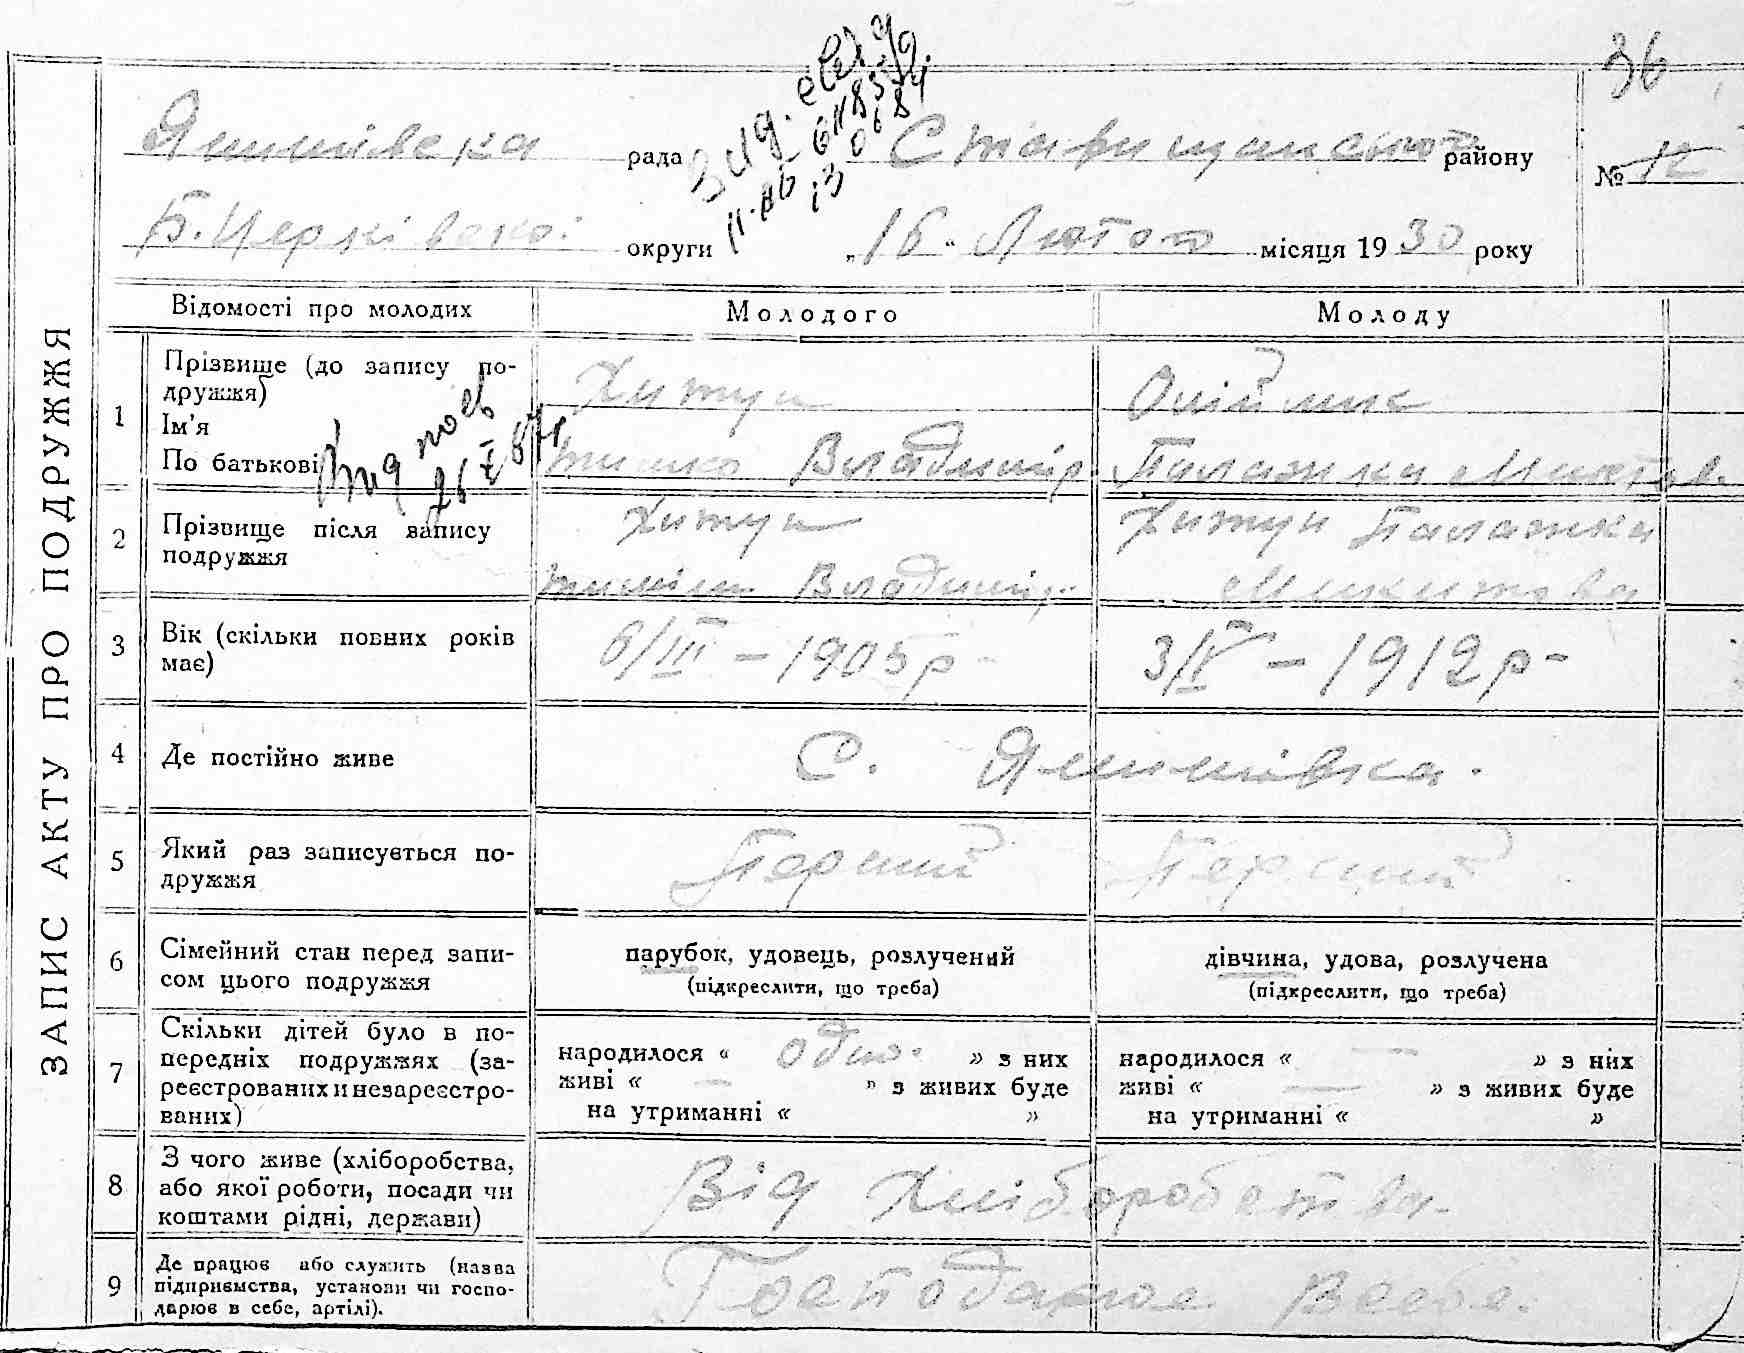 36
Яшинівска рада Ставищанського району № 12
Б. Церківської округи „16" Лютого місяця 1930 року
ЗАПИС АКТУ ПРО ПОДРУЖЖЯ
Відомості про молодих Молодого Молоду
1 Прізвище (до запису по-
дружжя)
Ім'я
По батькові
Хитун
Тишко Владимір.
Олійник
Палажка Микитов.
2 Прізвище після запису
подружжя
Хитун
Владимір.
Хитун Палажка
Микитова
3 Вік (скільки повних років
має)
6/III – 1905 р – 3/IV – 1912 р –
4 Де постійно живе С. Яшинівка.
5 Який раз записується по-
дружжя
Перший Перший
6 Сімейний стан перед запи-
сом цього подружжя
парубок, удовець, розлучений
(підкреслити, що треба)
дівчина, удова, розлучена
(підкреслити, що треба)
7 Скільки дітей було в по-
передніх подружжях (за-
реєстрованих и незареєстро-
ваних)
народилося « одно. » з них
живі « — » з живих буде
на утриманні « »
народилося « — » з них
живі « — » з живих буде
на утриманні « »
8 З чого живе (хліборобства,
або якої роботи, посади чи
коштами рідні, держави)
Від Хліборобства.
9 Де працює або служить (назва
підприємства, установи чи госпо-
дарює в себе, артілі).
Господарює В себе.